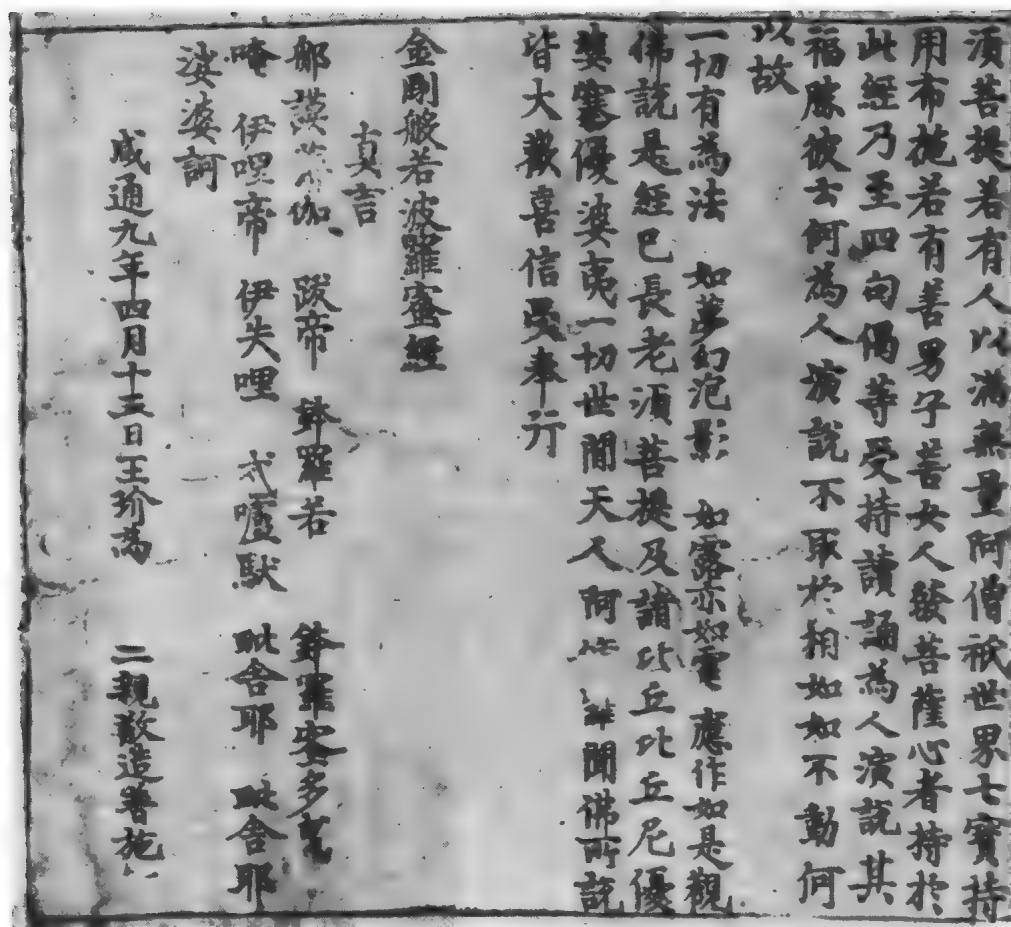 須菩提若有人以滿無量阿僧祇世界七寶持
用布施若有善男子善女人發菩薩心者持於
此經乃至四句偈等受持讀誦為人演說其
福勝彼云何為人演說不取於相如如不動何
以故
一切有為法　如夢幻泡影　如露亦如電　應作如是觀
佛說是經已長老須菩提及諸比丘比丘尼優
婆塞優婆夷一切世間天人阿脩羅聞佛所說
皆大歡喜信受奉行
金剛般若波羅蜜經
真言
那謨　伽　跋帝　鉢羅若　鉢羅蜜多
唵　伊哩帝　伊失哩　式嚧馱　毗舍耶　毗舍耶
娑婆訶
咸通九年四月十五日王玠為　二親敬造普施